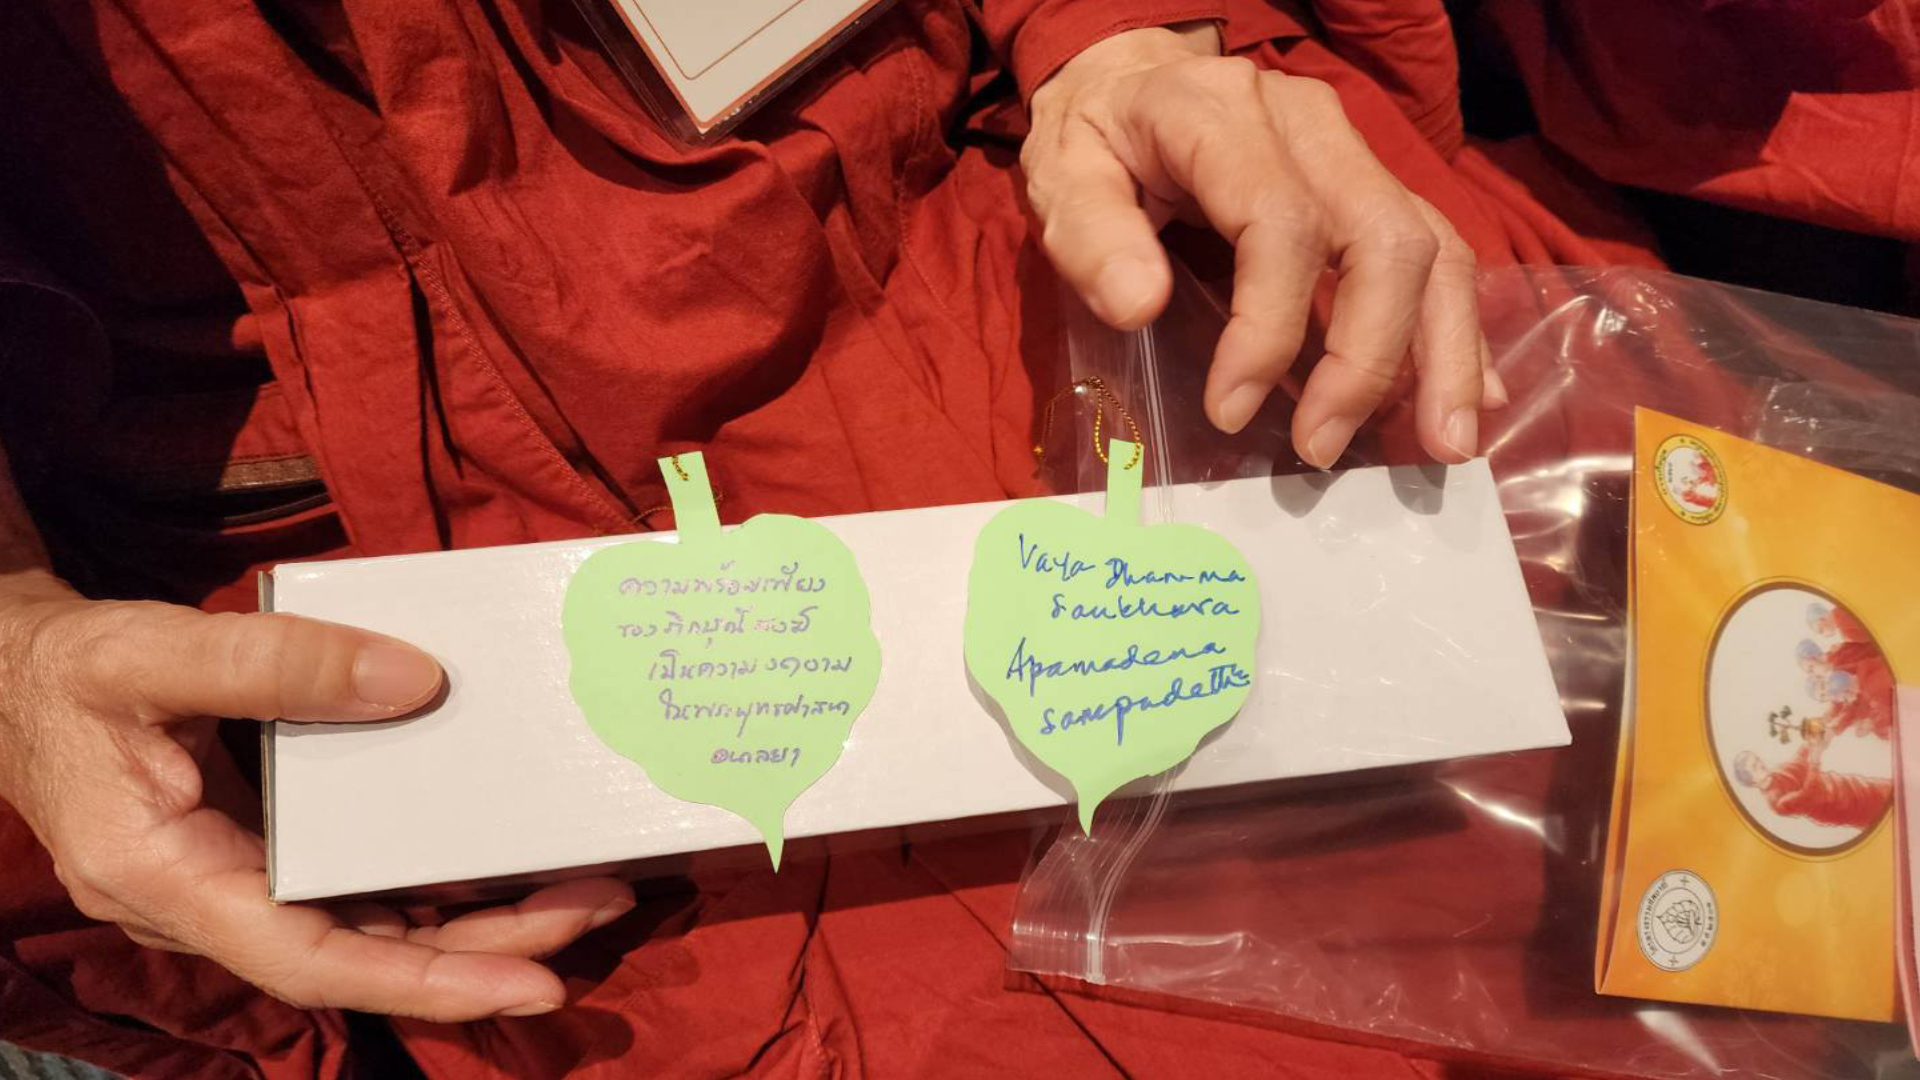 ความพร้อมเพียง
ของภิกษุณีสงฆ์
เป็นความงดงาม
ในพระพุทธศาสนา
Vaya Dhamma
Sankhara
Apamadena
Sampadettha